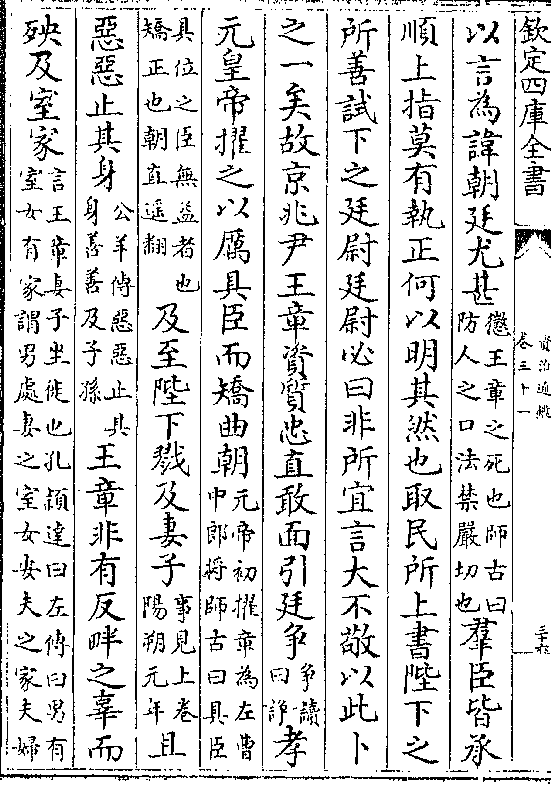 欽定四庫全書
資治通鑑
卷三十一
以言為諱朝廷尤甚懲王章之死也師古曰防人之口法禁嚴切也羣臣皆承
順上指莫有執正何以明其然也取民所上書陛下之
所善試下之廷尉廷尉必曰非所宜言大不敬以此卜
之一矣故京兆尹王章資質忠直敢面引廷争争讀曰諍孝
元皇帝擢之以厲具臣而矯曲朝元帝初擢章為左曹中郎将師古曰具臣
具位之臣無益者也矯正也朝直遥翻及至陛下戮及妻子事見上卷陽朔元年且
惡惡止其身公羊傳惡惡止其身善善及子孫王章非有反畔之辜而
殃及室家言王章妻子坐徙也孔穎達曰左傳曰男有室女有家謂男處妻之室女安夫之家夫婦